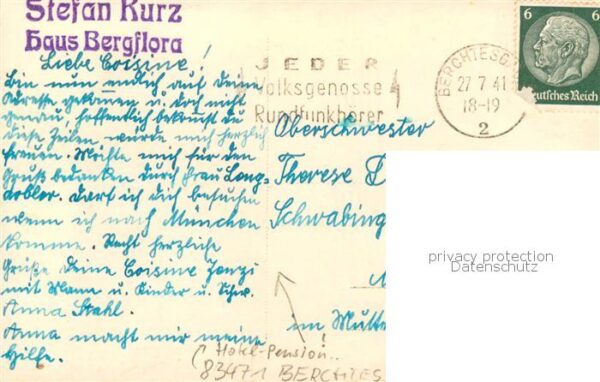 Stefan Kurz
Haus Bergflora
Liebe Cousine!
Bin nun endlich auf deine
Adresse gekommen u. doch nicht
genau, hoffentlich bekommst du
diese Zeilen würde mich herzlich
freuen. Möchte mich für den
Gruß bedanken durch Frau Lang-
kobler. Darf ich dich besuchen
wenn ich nach München
komme. Recht herzliche
Grüße deine Cousine Zenzi
mit Mann u. Kinder u. Schw.
Anna Stahl.
Anna macht mir meine
Hilfe.
JEDER
Volksgenosse
Rundfunkhörer
BERCHTESG
27 7 41
18-19
2
6 6
Deutsches Reich
Oberschwester
Therese
Schwabing
im Mutte
Hotel-Pension..
83471 BERCHTES
privacy protection
Datenschutz